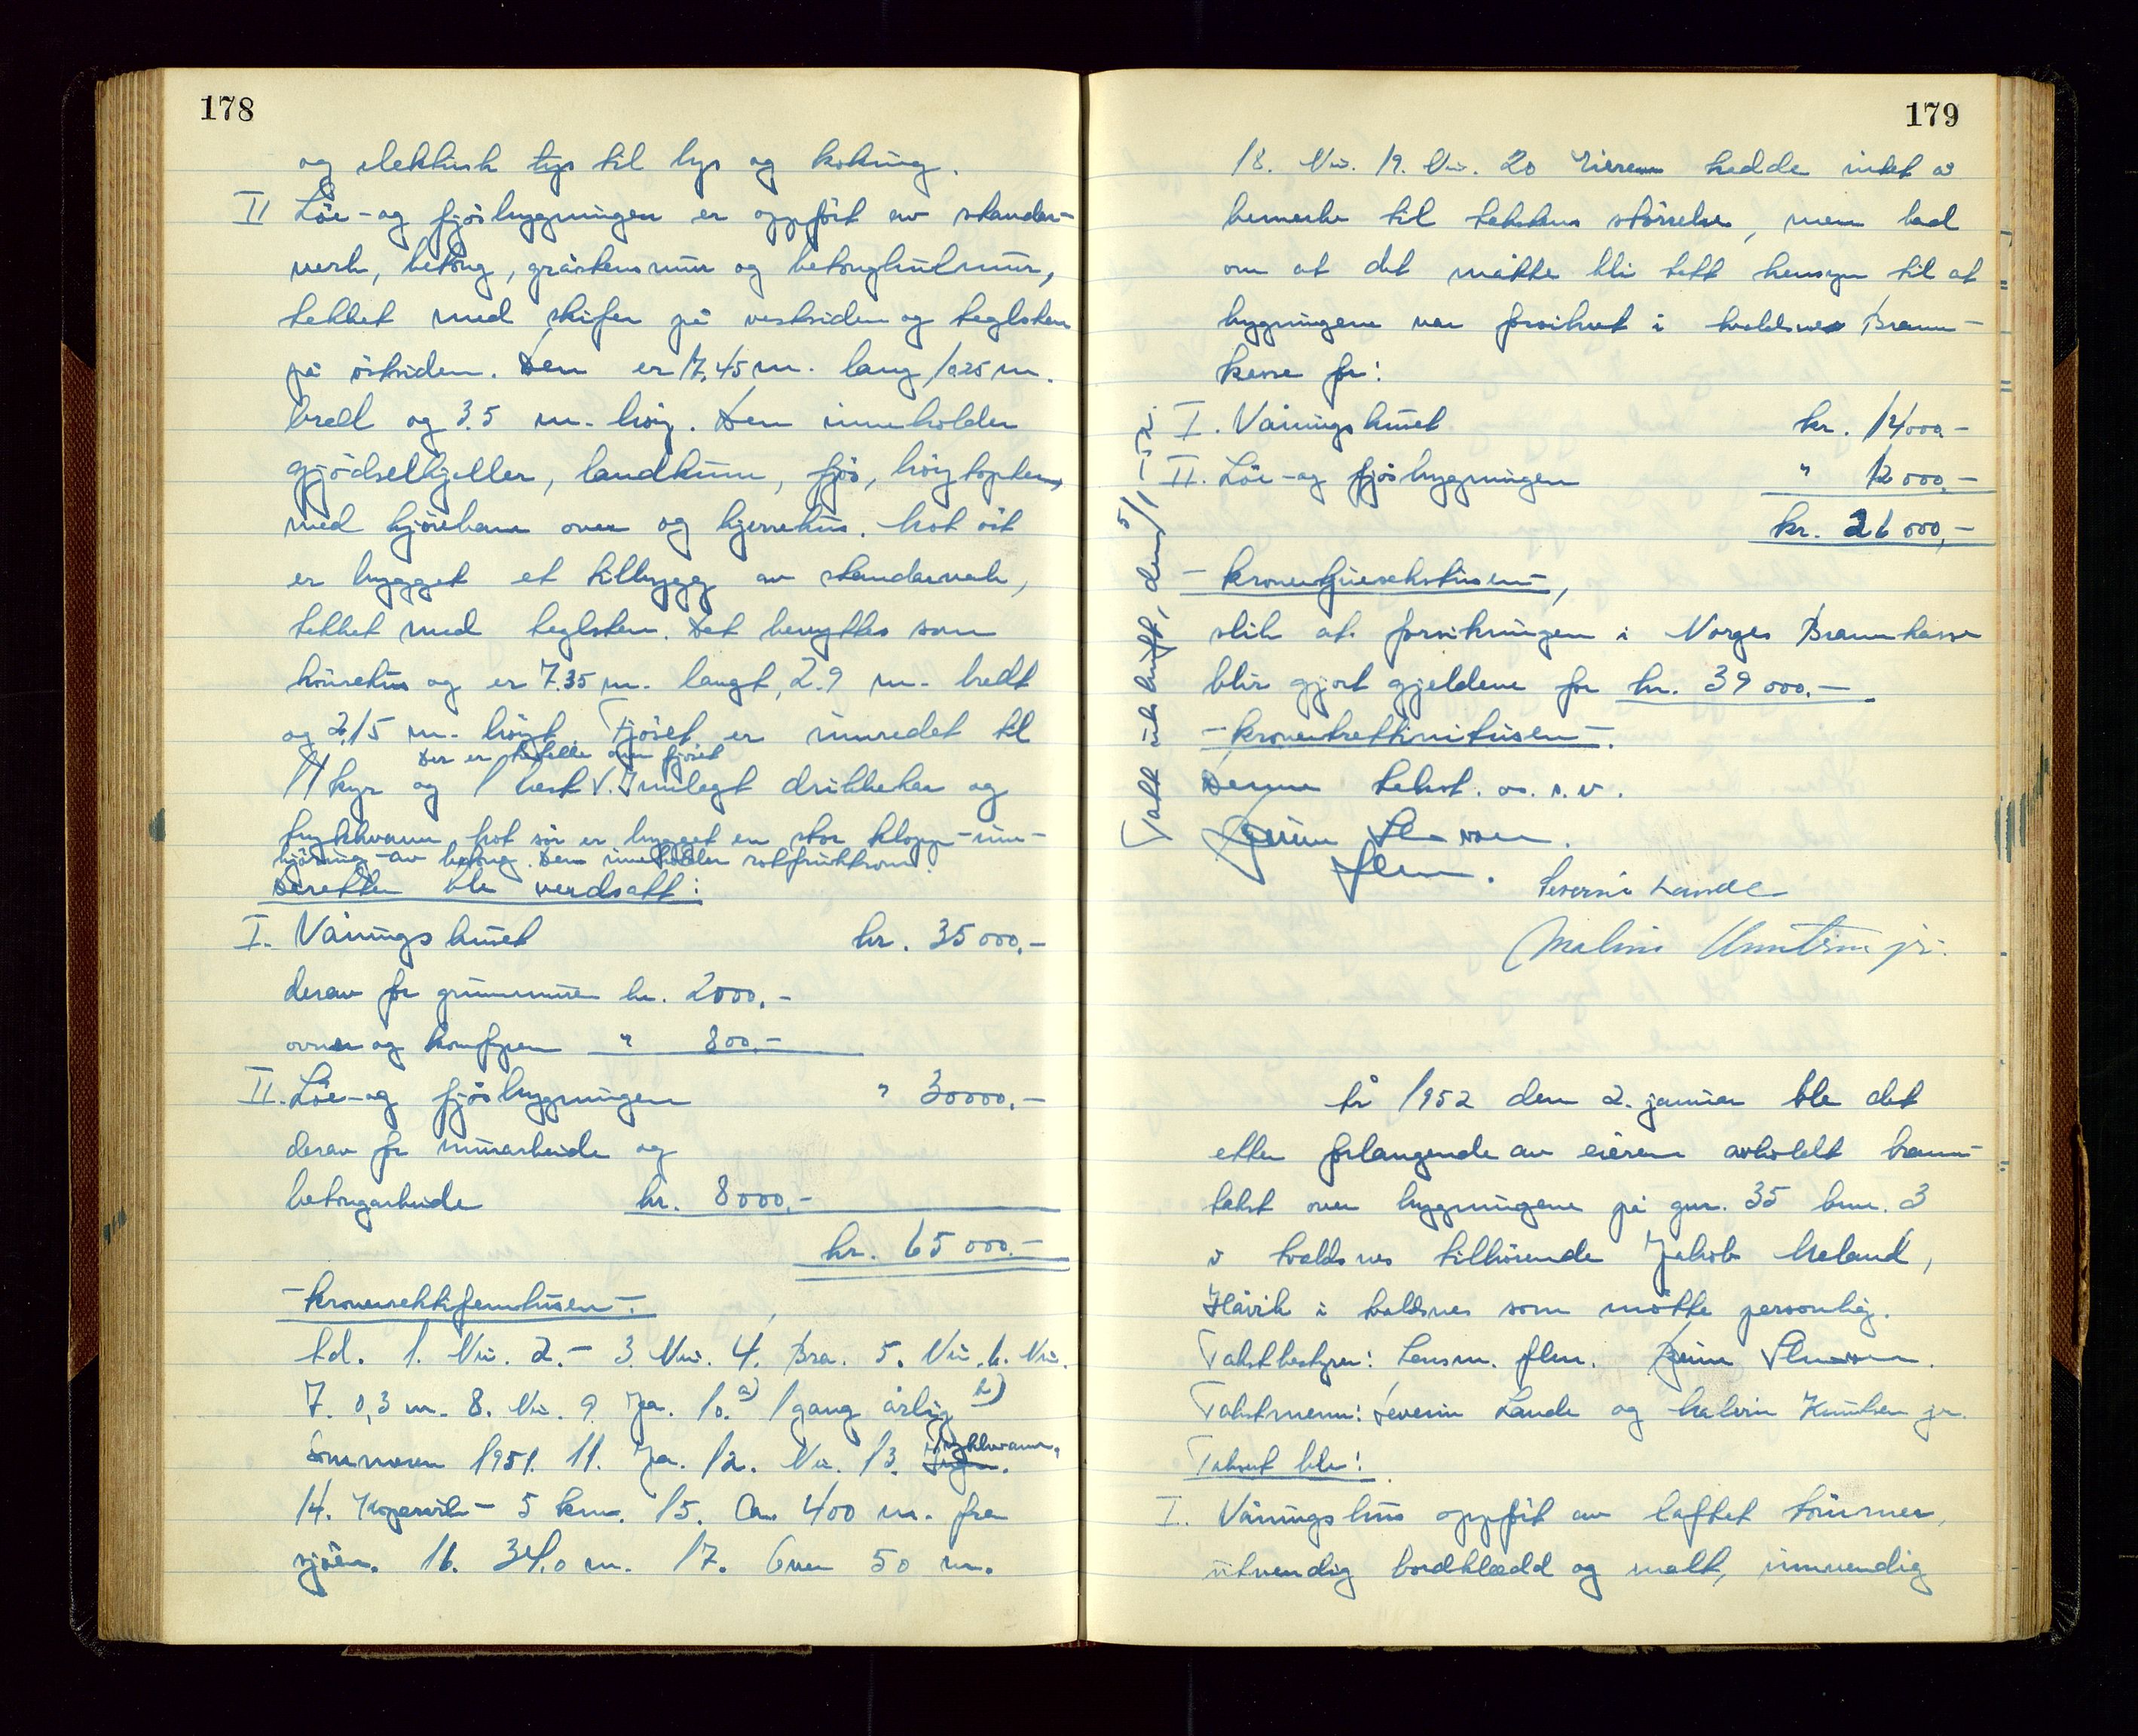 178
og elektrisk lys til lys og koking.
II Löe- og fjösbygningen er oppfört av standar-
verk, betong, gråstensmur og betonghulmur,
tekket med skifer på vestsiden og teglsten
på östsiden. Den er 17,45 m. lang, 10.25 m.
bred og 3.5 m. höy. Den inneholder
gjödselkjeller, landkum, fjös, höytopter,
med kjörebane over og kjerrehus. Mot öst
er bygget et tilbygg av standarverk,
tekket med teglsten. Det benyttes som
hönsehus og er 7.35 m. langt, 2.9 m. bredt
og 2,15 m. höyt. Fjöset er innredet til
Der er over fjöset
11 kyr og 1 hest V. Innlagt drikkekar og
trykkvann. Mot sör er bygget en stor klopp - inn-
kjöring - av betong. Den inneholder rotfruktrom.
Deretter ble verdsatt:
I. Våningshuset kr. 35 000.-
derav for grunnmur kr. 2000.-
ovner og komfyren " 800.-
II. Löe- og fjösbygningen " 30000.-
derav for murarbeide og
betongarbeide kr. 8000.-
kr. 65 000.-
- kronersekstifemtusen -.
Ad. 1. Nei. 2.- 3. Nei. 4. Bra. 5. Nei. 6. Nei.
7. 0,3 m. 8. Nei. 9. Ja. 10. a) 1 gang årlig b)
Sommeren 1951. 11. Ja. 12. Nei. 13. Trykkvann.
14. Kopervik - 5 km. 15. Ca. 400 m. fra
sjöen. 16. 34.0 m. 17. Over 50 m.
179
18. Nei. 19. Nei. 20 Eieren hadde intet å
bemerke til takstens störrelse, men bad
om at det måtte bli tatt hensyn til at
bygningene var forsikret i Avaldsnes Brann-
kasse for:
I. Våningshuset kr. 14000.-
II. Löe- og fjösbygningen " 12 000.-
kr. 26 000,-
- kronertjuesekstusen -,
slik at forsikringen i Norges Brannkasse
blir gjort gjeldene for kr. 39 000.-
- kronertrettinitusen -.
Denne takst. o. s. v.
Severin Lande
Malvin Knutsen jr.
Tatt utskrift, den 5/1 - 52.
År 1952 den 2. januar ble det
etter forlangende av eieren avholdt brann-
takst over bygningene på gnr. 35 bnr. 3
i Avaldsnes tilhörende Jakob Meland,
Håvik i Avaldsnes som mötte personlig.
Takstbestyrer: Lensm. flm.
Takstmenn: Severin Lande og Malvin Knutsen jr.
Takset ble:
I. Våningshus oppfört av laftet tömmer,
utvendig bordkledd og malt, innvendig